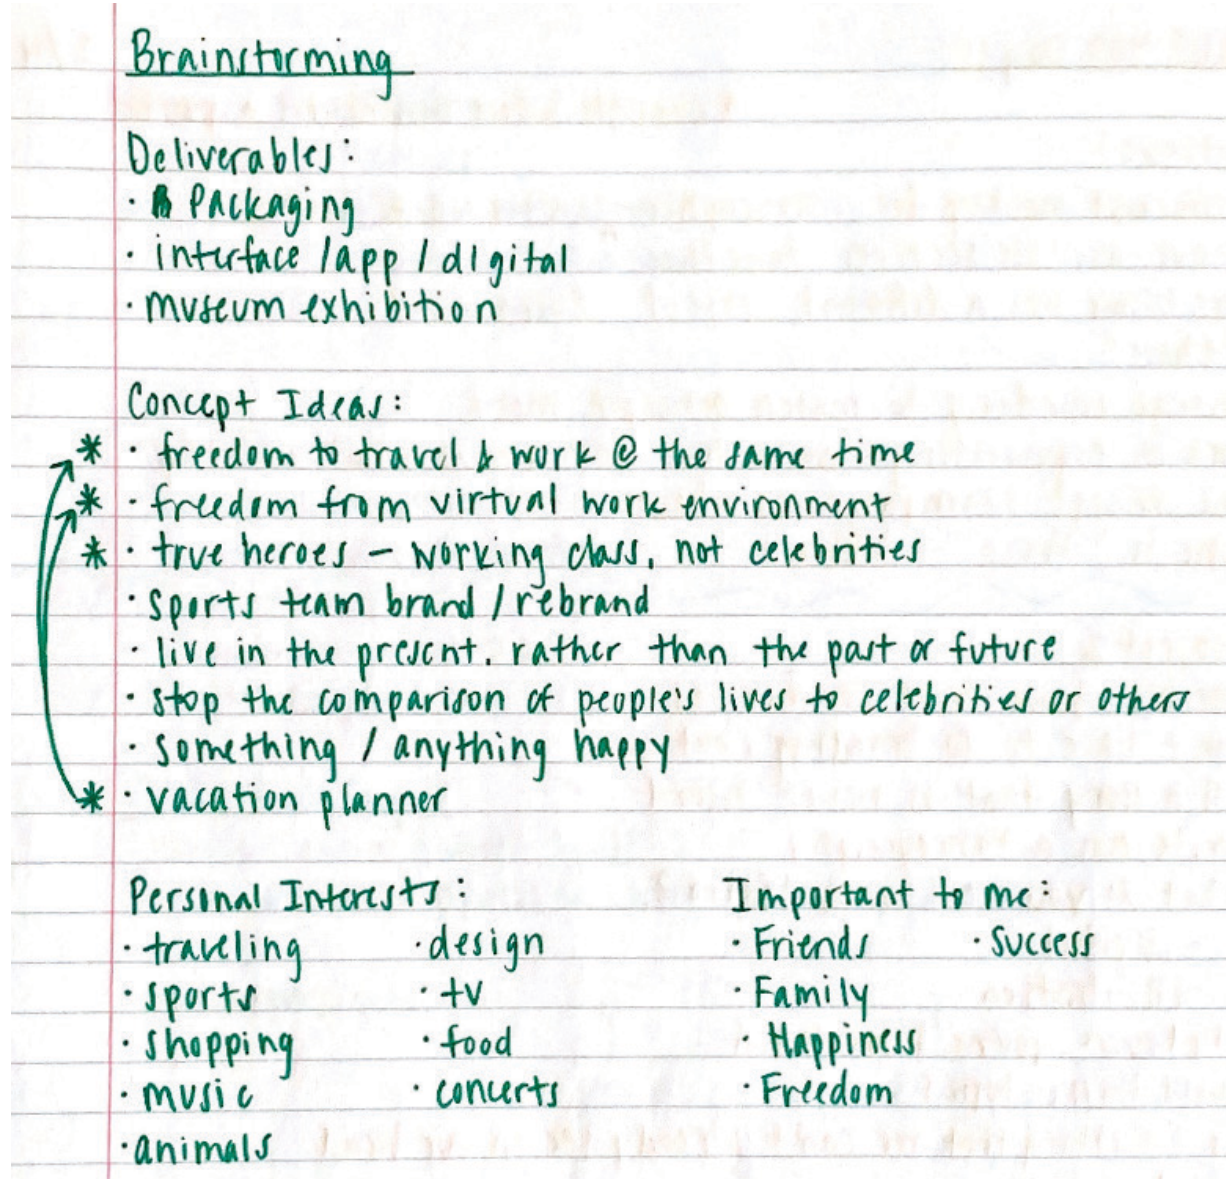 Brainstorming
Deliverables:
· Packaging
· interface / app / digital
· museum exhibition
Concept Ideas:
* · freedom to travel & work @ the same time
* · freedom from virtual work environment
* · true heroes – working class, not celebrities
· sports team brand / rebrand
· live in the present, rather than the past or future
· stop the comparison of people's lives to celebrities or others
· something / anything happy
* · vacation planner
Personal Interests:
· traveling · design
· sports · tv
· shopping · food
· music · concerts
· animals
Important to me:
· Friends · Success
· Family
· Happiness
· Freedom